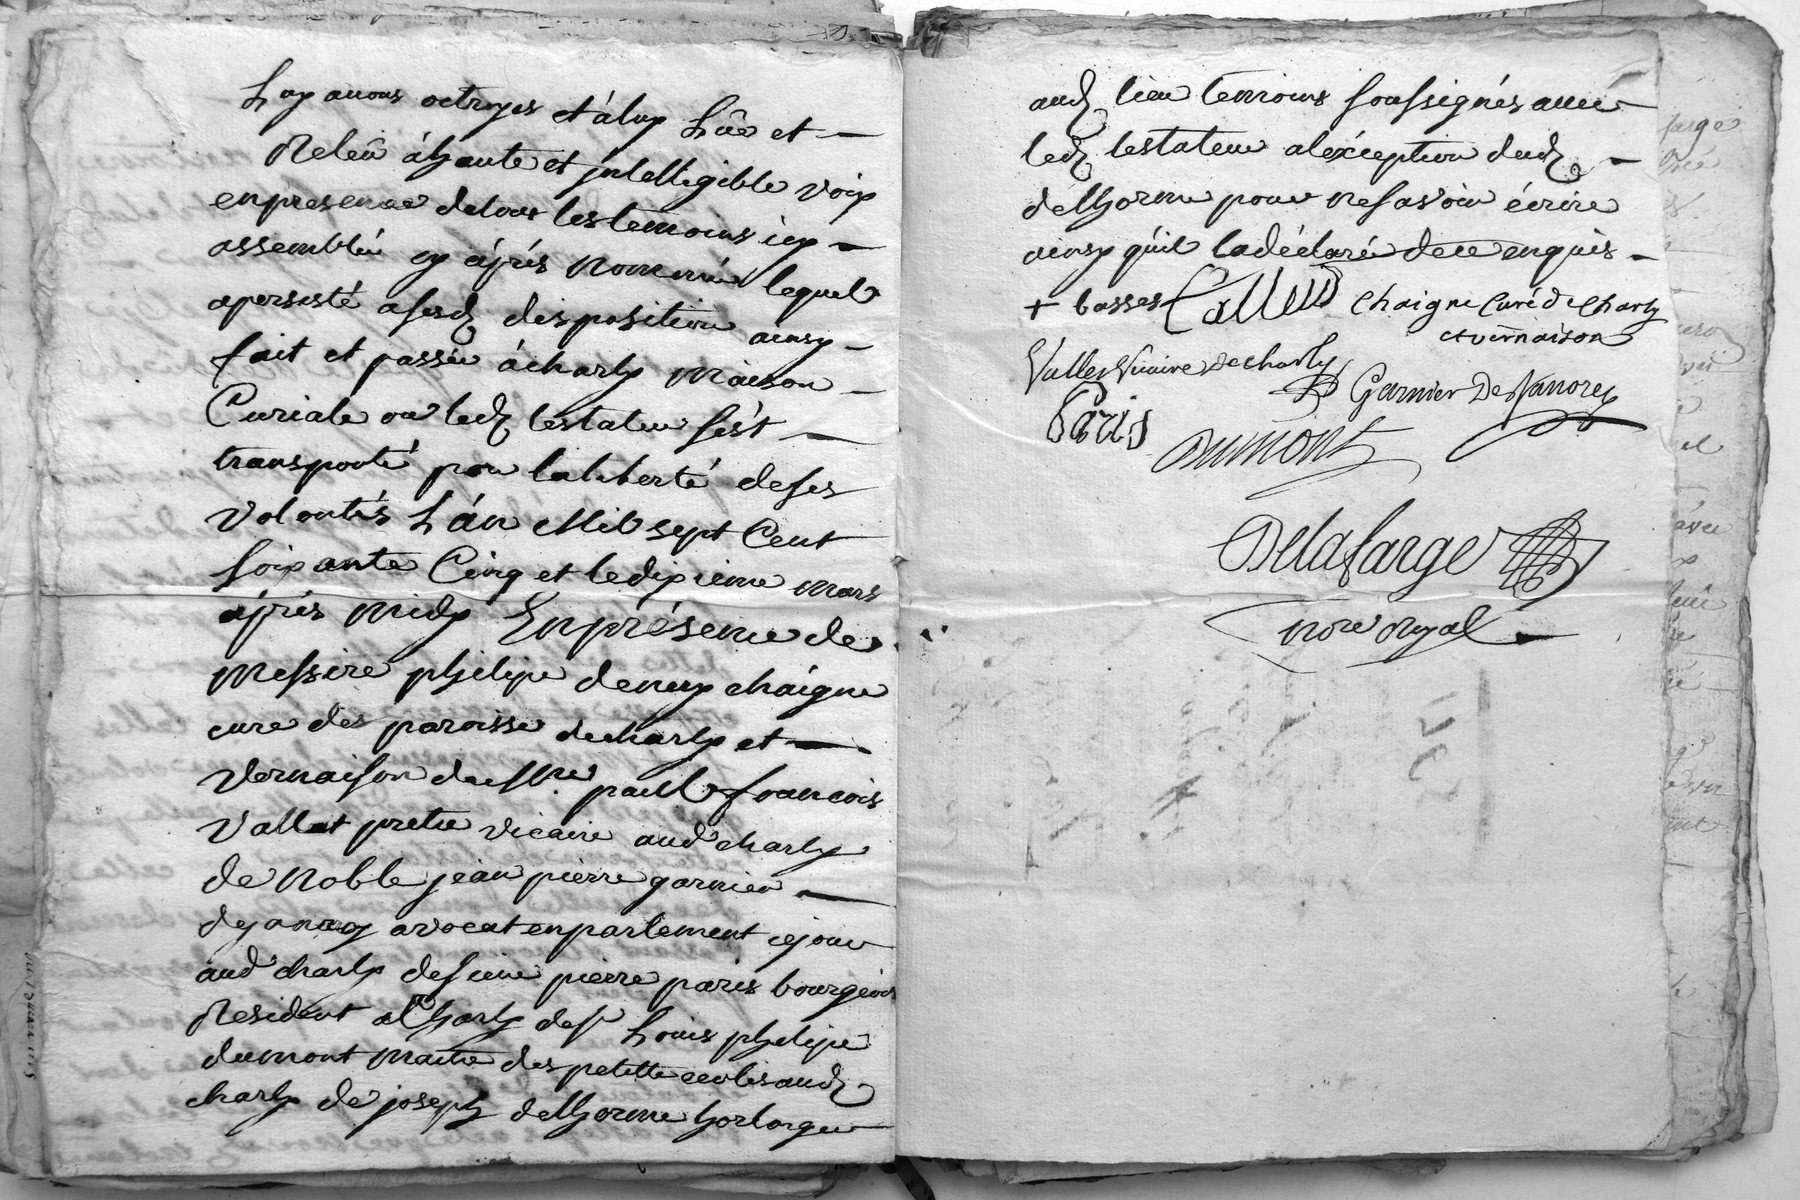 Luy avons octroyés et à luy Lüe et
Releüe à haute et jntelligible voix
en presence de tous les temoins icy
assemblés cy après nommés lequel
a persisté a sesd disposition ainsy
fait et passée à charly Maison
Curiale ou led testateur s'est
transporté pour la liberté de ses
volontés L'án Mil sept Cent
soixante Cinq et le dixieme mars
aprés midy En présence de
Messire philipe deneux chaigne
curé des paroisse de charly et
Vernaison de Mre paul francois
Vallet pretre vicaire aud charly
de Noble jean pierre garnier
avocat en parlement
aud charly de sieur pierre paris bourgeois
Resident a Charly de sr Louis philipe
dumont maitre des petitte ecolles aud
charly de joseph delhorme horloger
aud lieu temoins soussignés avec
led testateur a léxception dud
delhorme pour ne savoir écrire
ainsy quil la déclaré de ce enquis
+ basses Chaigne Curé de Charly
et vernaison
Vallet Vicaire de charly
Garnier
Paris
Dumont
Delafarge
nore Royal